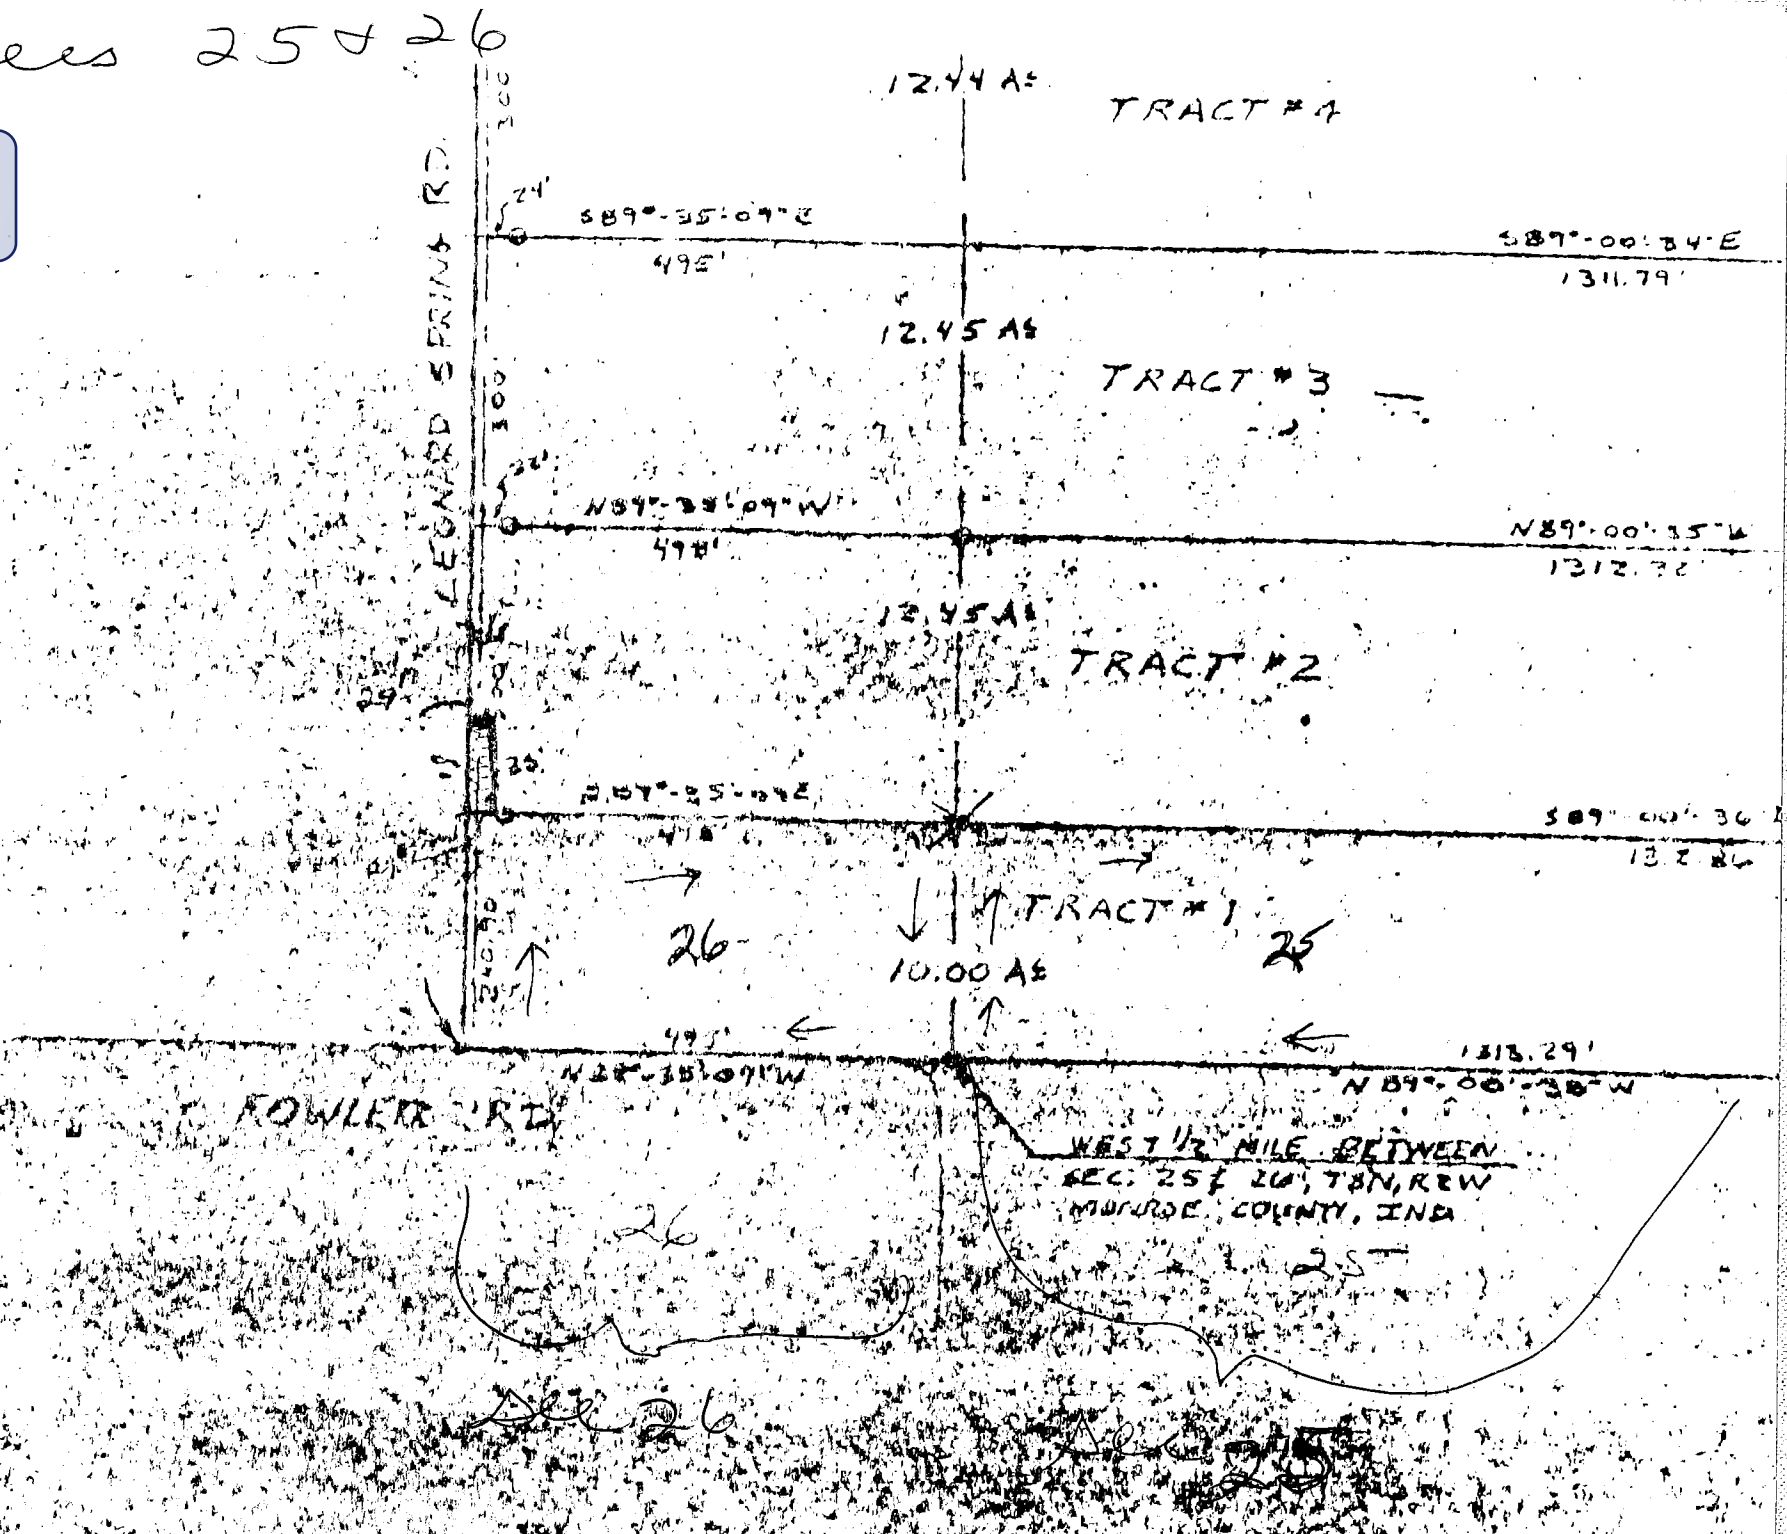 25 & 26
300
12.44 A±
TRACT # 4
LEONARD SPRING RD.
24'
S89°-35'-09"E
495'
S89°-00'-34"E
1311.79'
12.45 A±
TRACT # 3
300'
N89°-35'-09"W
495'
N89°-00'-35"W
1312.32'
12.45 A±
TRACT # 2
29'
35'
S89°-00'-36"
TRACT # 1
26
25
10.00 A±
340.90
495'
N89°-35'-09"W
1313.29'
N 89°-00'-38"W
FOWLER RD.
WEST 1/2 MILE BETWEEN
SEC. 25 & 26, T8N, R2W
MONROE COUNTY, IND
26
25
Sec 26
Sec 25